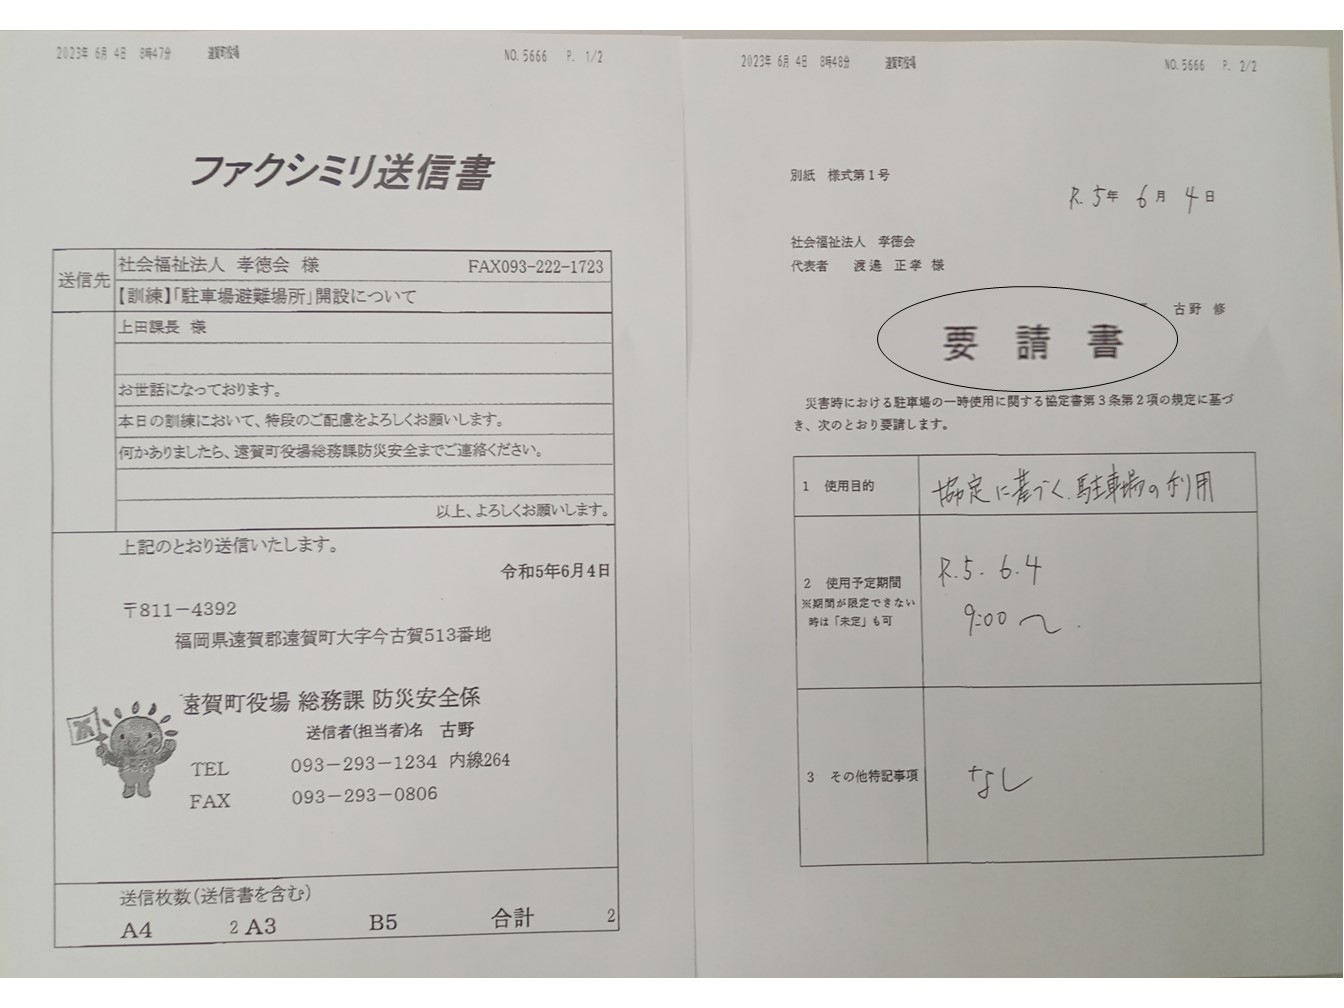 2023年 6月 4日 8時47分 遠賀町役場 NO.5666 P. 1/2
ファクシミリ送信書
送信先
社会福祉法人 孝徳会 様 FAX093-222-1723
【訓練】「駐車場避難場所」開設について
上田課長 様
お世話になっております。
本日の訓練において、特段のご配慮をよろしくお願いします。
何かありましたら、遠賀町役場総務課防災安全までご連絡ください。
以上、よろしくお願いします。
上記のとおり送信いたします。
令和5年6月4日
〒811-4392
福岡県遠賀郡遠賀町大字今古賀513番地
遠賀町役場 総務課 防災安全係
送信者(担当者)名 古野
TEL 093-293-1234 内線264
FAX 093-293-0806
送信枚数(送信書を含む)
A4 2 A3 B5 合計 2
2023年 6月 4日 8時48分 遠賀町役場 NO.5666 P. 2/2
別紙 様式第1号
R.5年 6月 4日
社会福祉法人 孝徳会
代表者 渡邉 正孝 様
古野 修
要請書
災害時における駐車場の一時使用に関する協定書第3条第2項の規定に基づ
き、次のとおり要請します。
1 使用目的 協定に基づく、駐車場の利用
2 使用予定期間
※期間が限定できない
時は「未定」も可
R.5. 6.4
9:00〜.
3 その他特記事項 なし